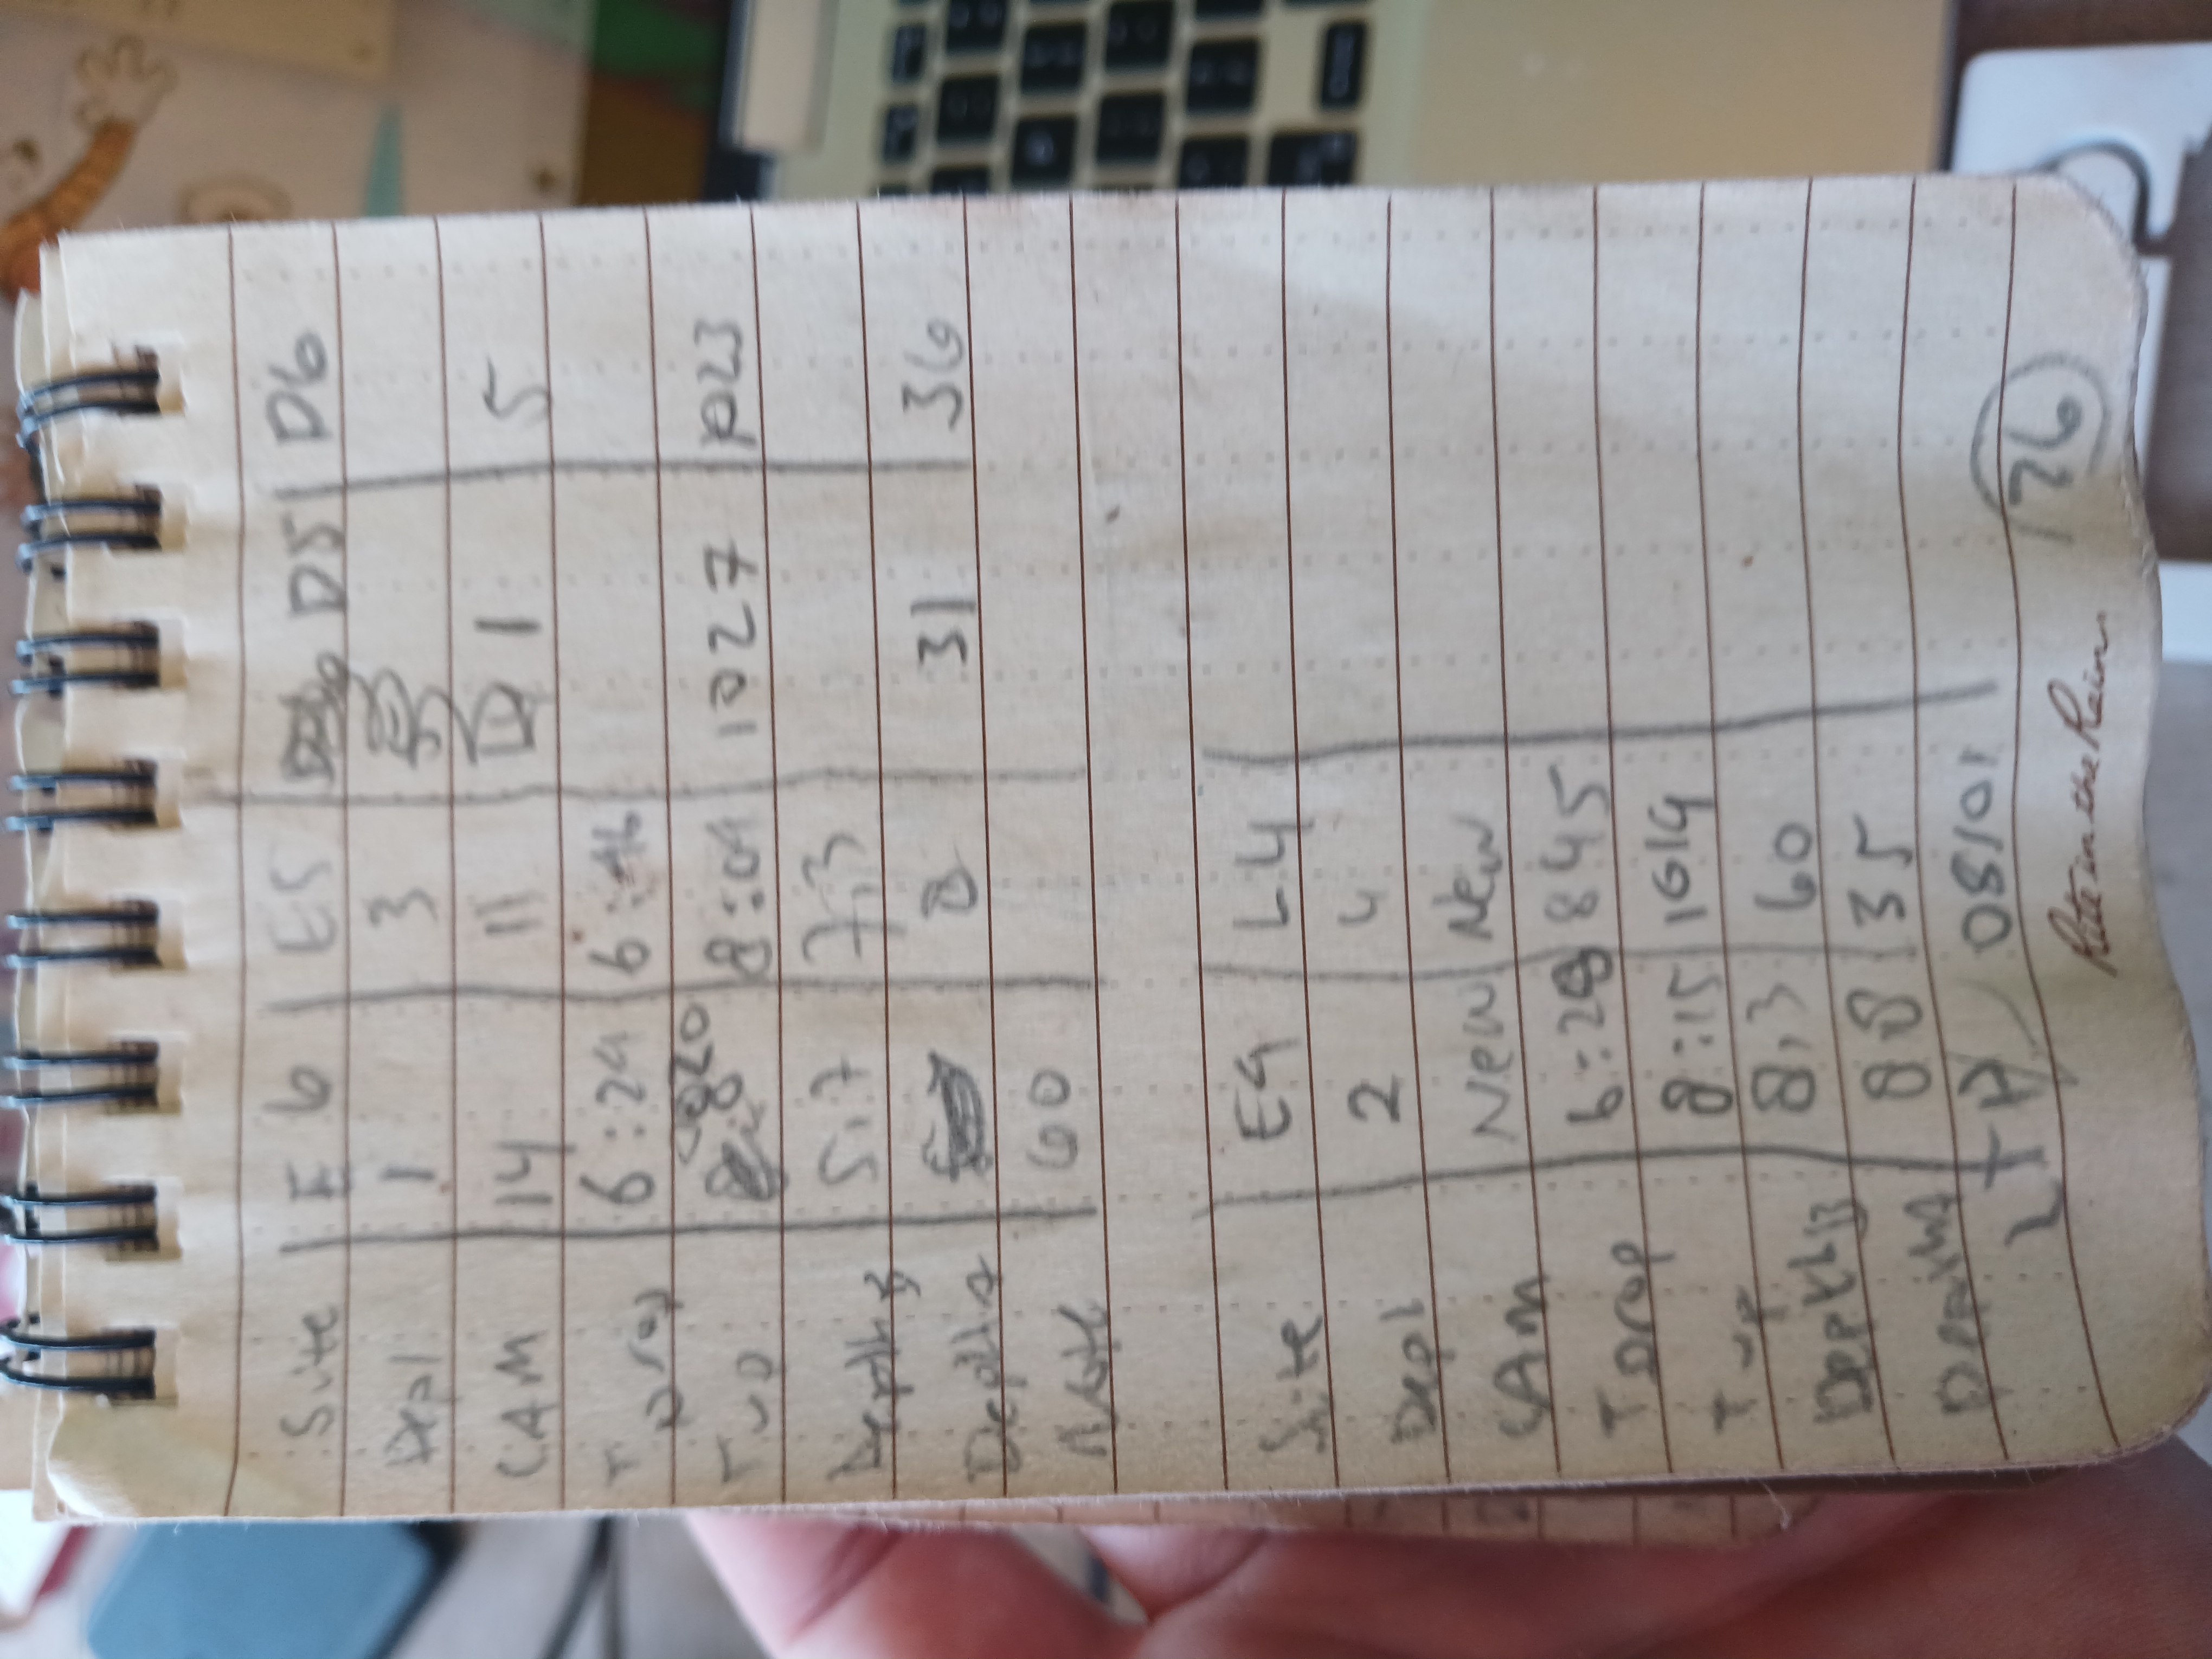 Site E 6 E5 D5 D6
Depl 1 3
CAM 14 11 1 5
T Drop 6:24 6:46
T up 820 8:04 1027 1023
Depth B 5,7 7,3
Depth A 8 31 36
Note 60
Site E4 L4
Depl 2 4
CAM New New
T Drop 6:28 845
T up 8:15 1014
Depth B 8,3 60
Depth A 8 8 35
08/01
76
Rite in the Rain